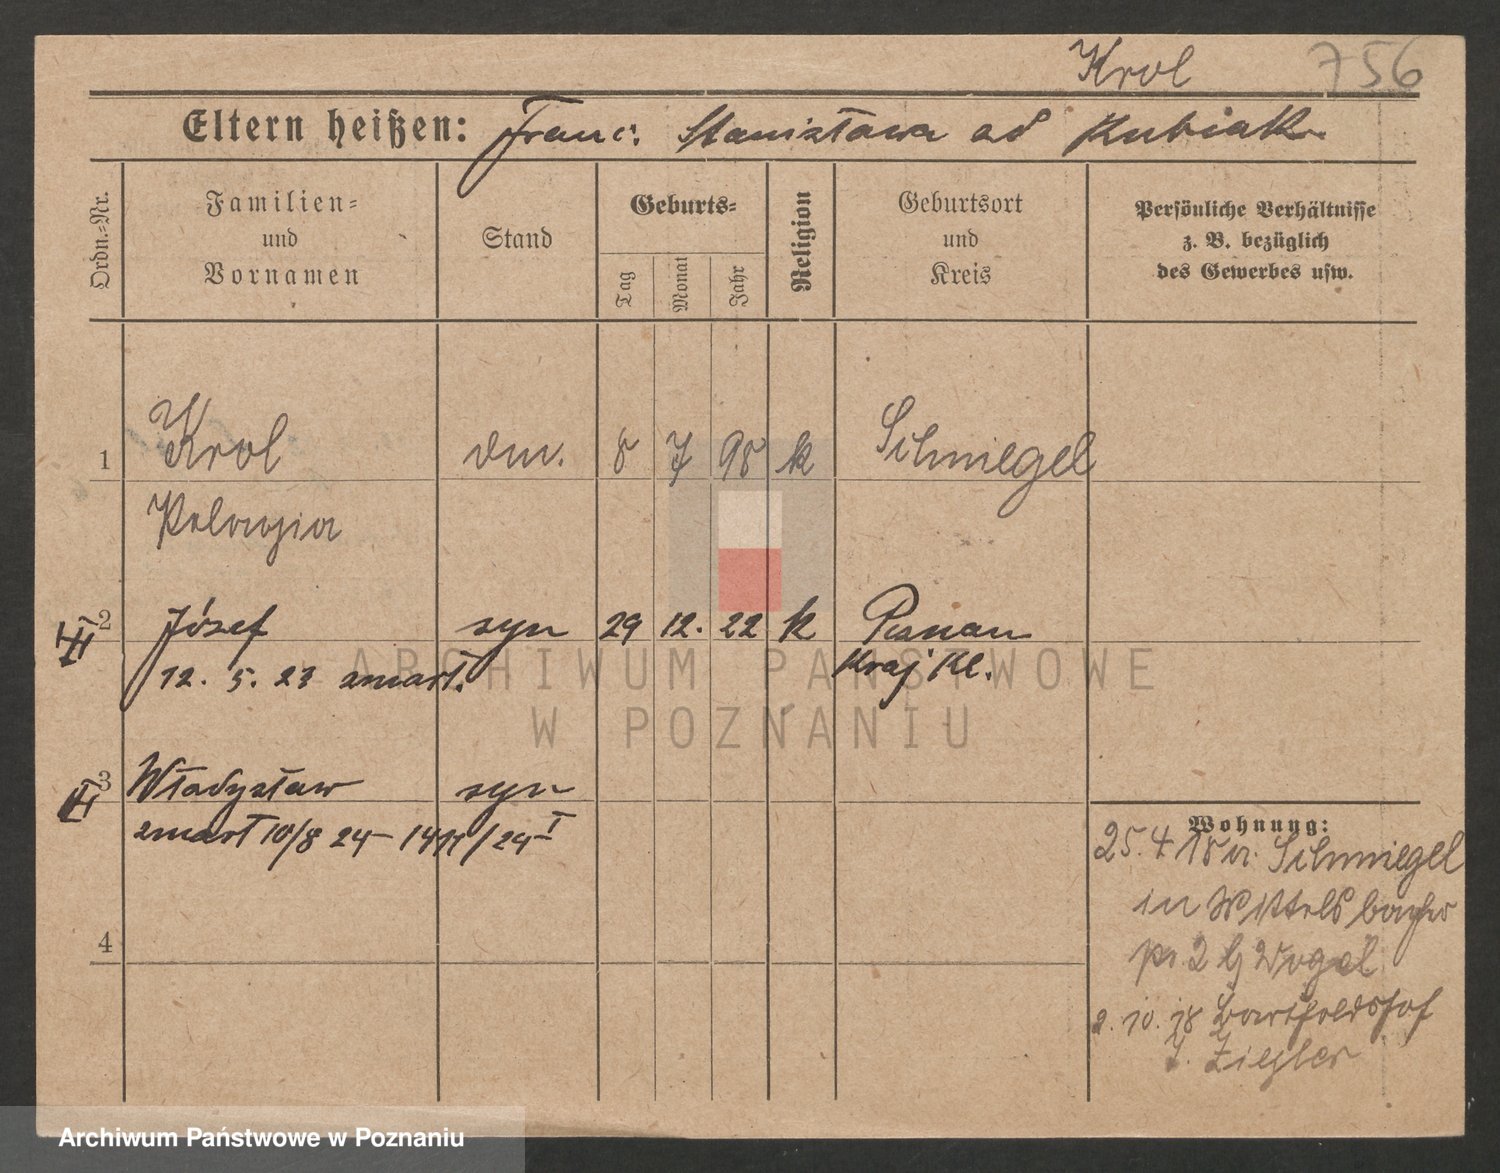 Krol 756
Eltern heißen: Franc. Stanisława od Kubiak
Ordn.-Nr.
Familien-
und
Vornamen
Stand
Geburts-
Tag
Monat
Jahr
Religion
Geburtsort
und
Kreis
Persönliche Verhältnisse
z. B. bezüglich
des Gewerbes usw.
1 Krol dm. 8 7 98 k Schmiegel
Pelagia
2 Józef syn 29 12. 22 k Poznan
12. 5. 23 zmarł. Kraj Kl.
3 Władysław syn
zmarł 10/8 24
4
Wohnung:
25. 4 18 v. Schmiegel
in Wittelsbacher
2 b Vogel
2. 10. 18 Bartholdshof
b. Ziegler
ARCHIWUM PAŃSTWOWE
W POZNANIU
Archiwum Państwowe w Poznaniu